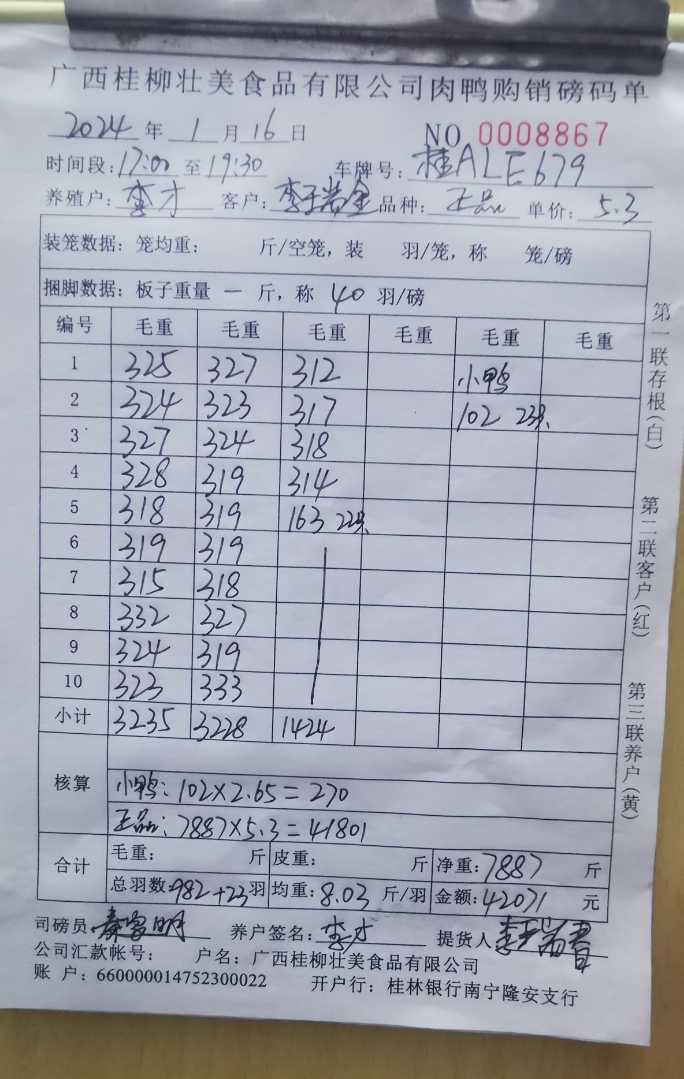 广西桂柳壮美食品有限公司肉鸭购销磅码单
2024年1月16日 NO 0008867
时间段:17:00至19:30 车牌号:桂ALE679
养殖户:李才 客户: 品种:正品 单价:5.3
装笼数据:笼均重: 斤/空笼,装 羽/笼,称 笼/磅
捆脚数据:板子重量 一 斤,称 40 羽/磅
编号 毛重 毛重 毛重 毛重 毛重 毛重
1 325 327 312 小鸭
2 324 323 317 102 23只
3 327 324 318
4 328 319 314
5 318 319 163 22只
6 319 319
7 315 318
8 332 327
9 324 319
10 323 333
小计 3235 3228 1424
核算
小鸭:102×2.65=270
正品:7887×5.3=41801
合计 毛重: 斤 皮重: 斤 净重:7887 斤
总羽数:982+23羽 均重:8.03 斤/羽 金额:42071 元
司磅员 秦富明 养户签名:李才 提货人
公司汇款帐号: 户名:广西桂柳壮美食品有限公司
账 户:660000014752300022 开户行:桂林银行南宁隆安支行
第一联存根(白)
第二联客户(红)
第三联养户(黄)